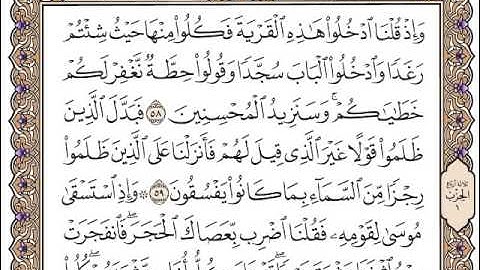 وَإِذْ قُلْنَا ٱدْخُلُوا۟ هَٰذِهِ ٱلْقَرْيَةَ فَكُلُوا۟ مِنْهَا حَيْثُ شِئْتُمْ
رَغَدًا وَٱدْخُلُوا۟ ٱلْبَابَ سُجَّدًا وَقُولُوا۟ حِطَّةٌ نَّغْفِرْ لَكُمْ
خَطَٰيَٰكُمْ ۚ وَسَنَزِيدُ ٱلْمُحْسِنِينَ ٥٨ فَبَدَّلَ ٱلَّذِينَ
ظَلَمُوا۟ قَوْلًا غَيْرَ ٱلَّذِى قِيلَ لَهُمْ فَأَنزَلْنَا عَلَى ٱلَّذِينَ ظَلَمُوا۟
رِجْزًا مِّنَ ٱلسَّمَآءِ بِمَا كَانُوا۟ يَفْسُقُونَ ٥٩ ۞ وَإِذِ ٱسْتَسْقَىٰ
مُوسَىٰ لِقَوْمِهِۦ فَقُلْنَا ٱضْرِب بِّعَصَاكَ ٱلْحَجَرَ ۖ فَٱنفَجَرَتْ
الحزب
١